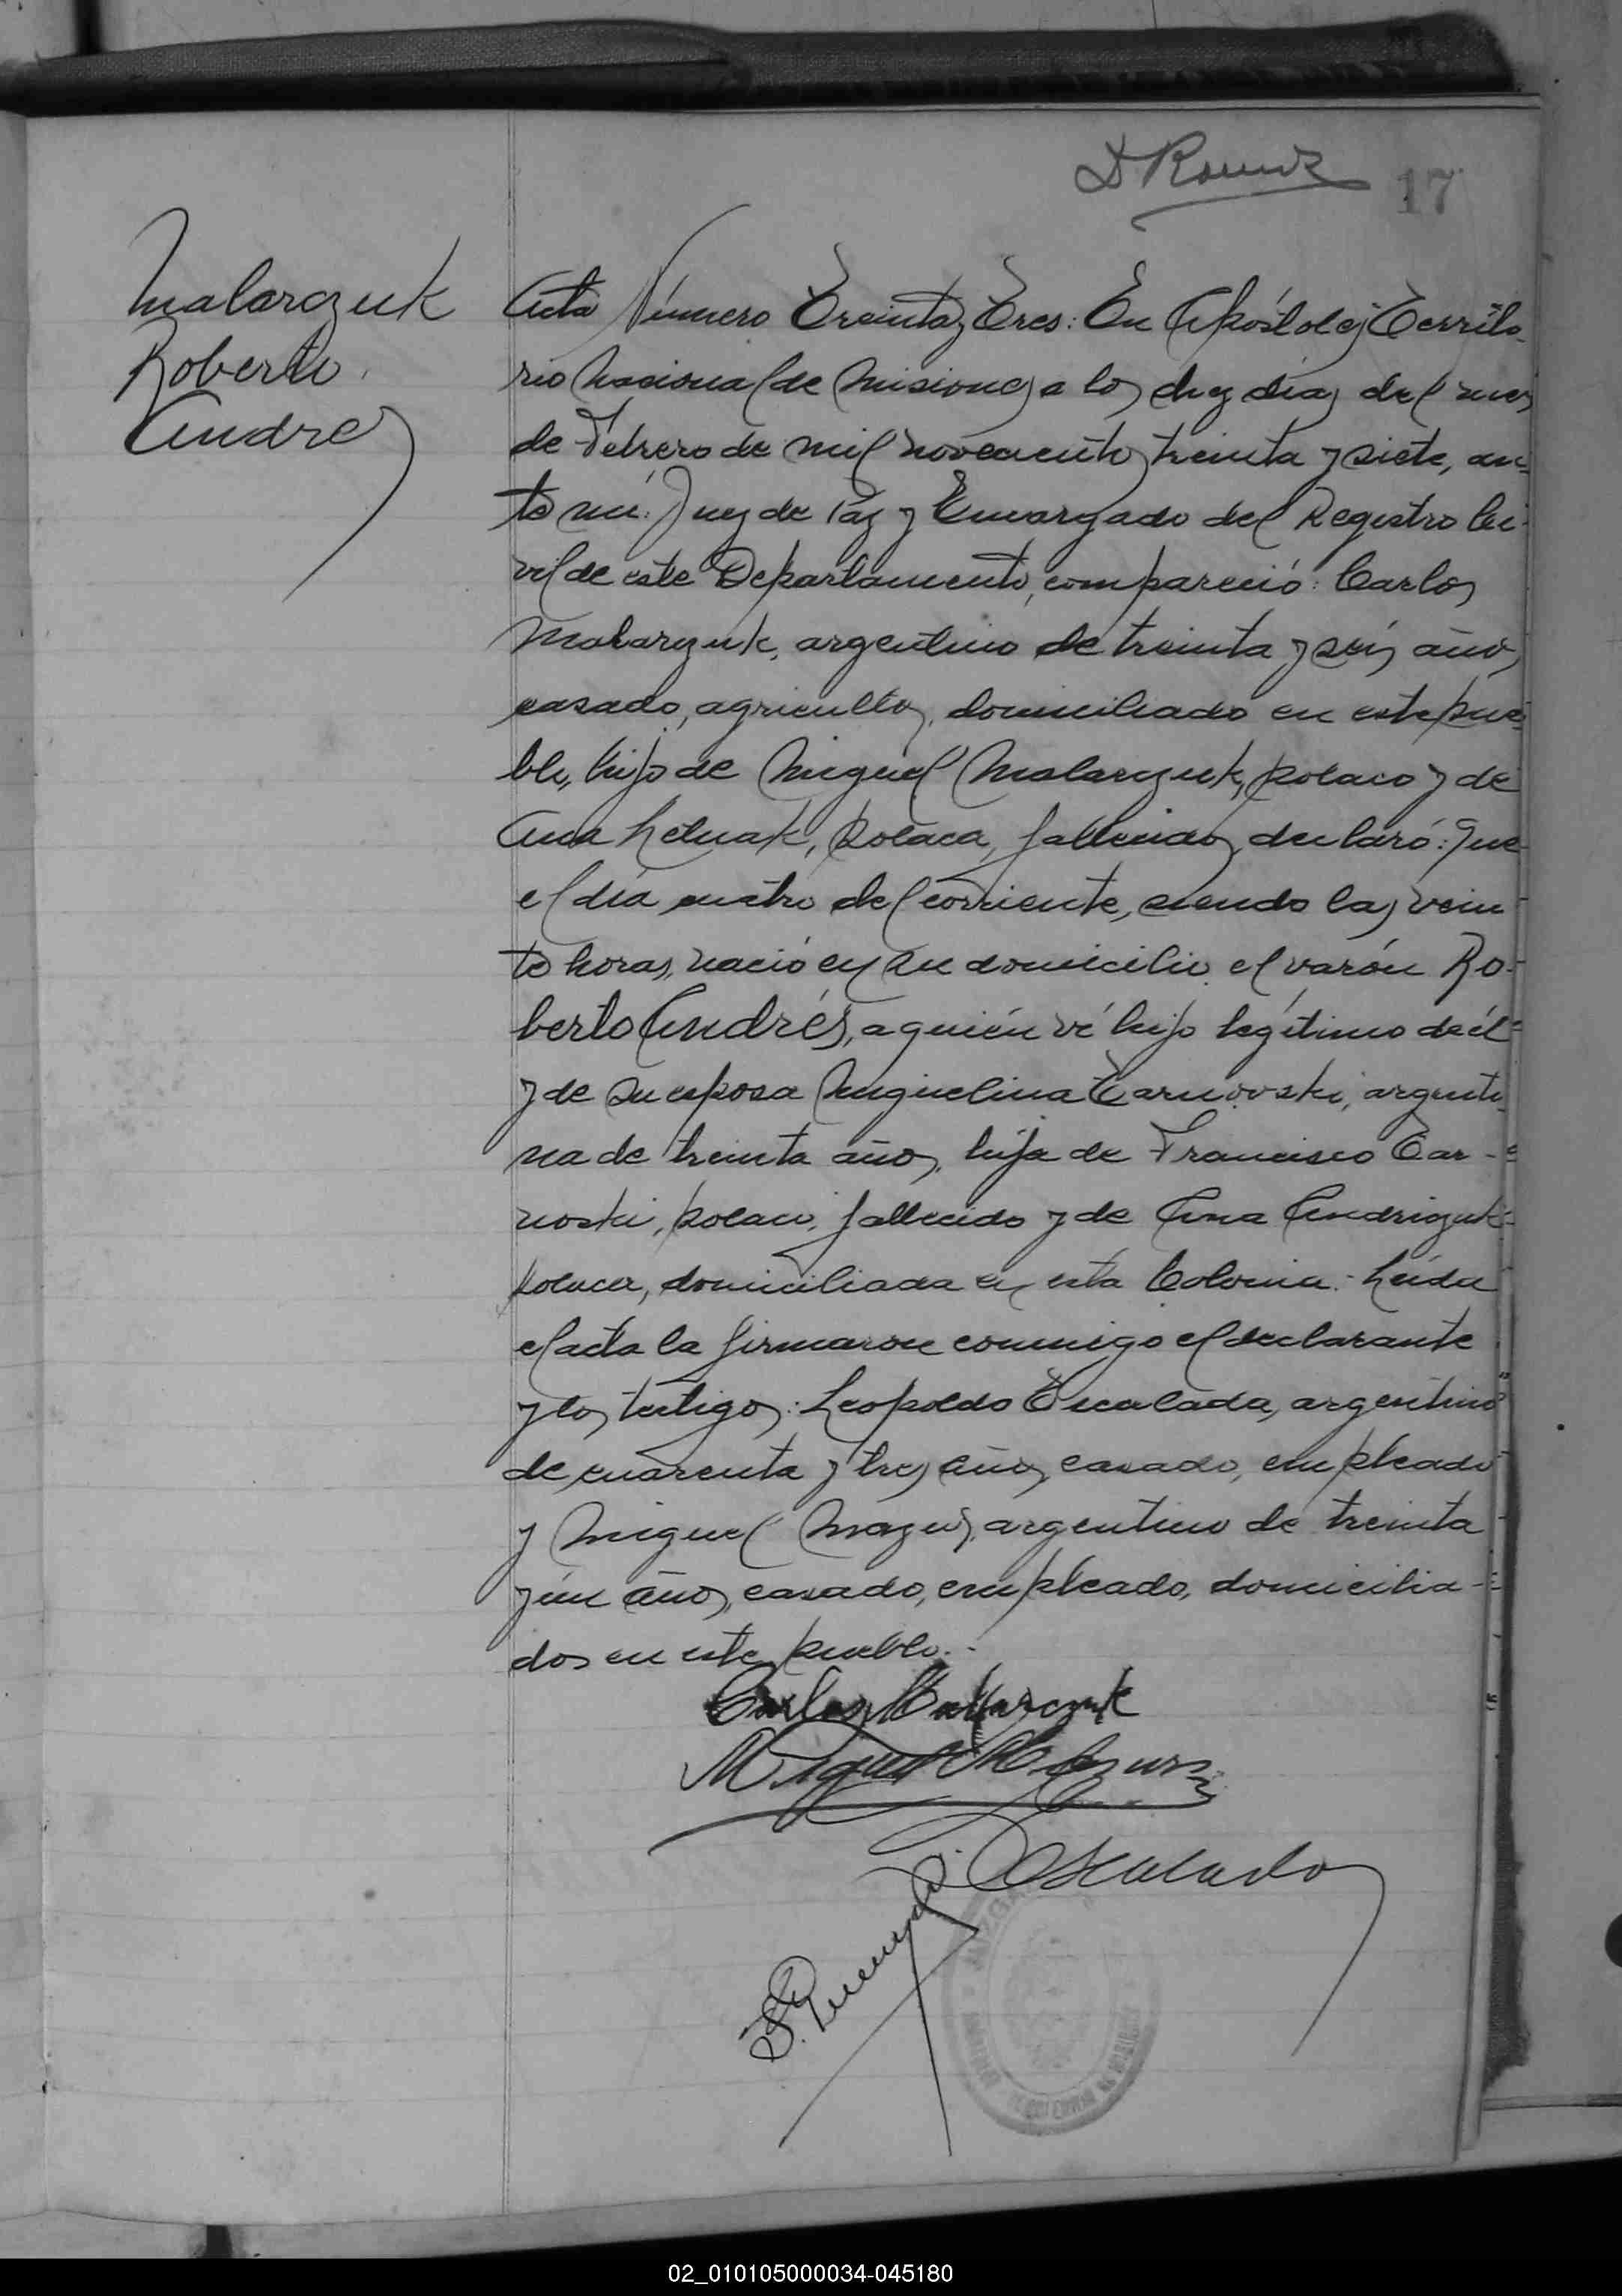 17
Malarczuk
Roberto
Andrés
Acta Número Treinta y Tres: En Apóstoles, Territo-
rio Nacional de Misiones, a los diez días del mes
de Febrero de mil novecientos treinta y siete, an-
te mí: Juez de Paz y Encargado del Registro Ci-
vil de este Departamento, compareció: Carlos
Malarczuk, argentino de treinta y seis años,
casado, agricultor, domiciliado en este pue-
blo, hijo de Miguel Malarczuk, polaco y de
Ana, polaca, fallecidos, declaró: Que
el día cuatro del corriente, siendo las vein
te horas, nació en su domicilio el varón Ro-
berto Andrés, a quién vé hijo legítimo de él
y de su esposa Miguelina Tarnovski, argenti-
na de treinta años, hija de Francisco Tar-
noski, polaco, fallecido y de Ana Andrizuk
polaca, domiciliada en esta Colonia.- Leída
el acta la firmaron conmigo el declarante
y los testigos: Leopoldo Escalada, argentino
de cuarenta y tres años, casado, empleado
y Miguel Mazur, argentino de treinta
y un años, casado, empleado, domicilia-
dos en este pueblo.-
Carlos Malarczuk
Miguel Mazur
Escalada
02_010105000034-045180